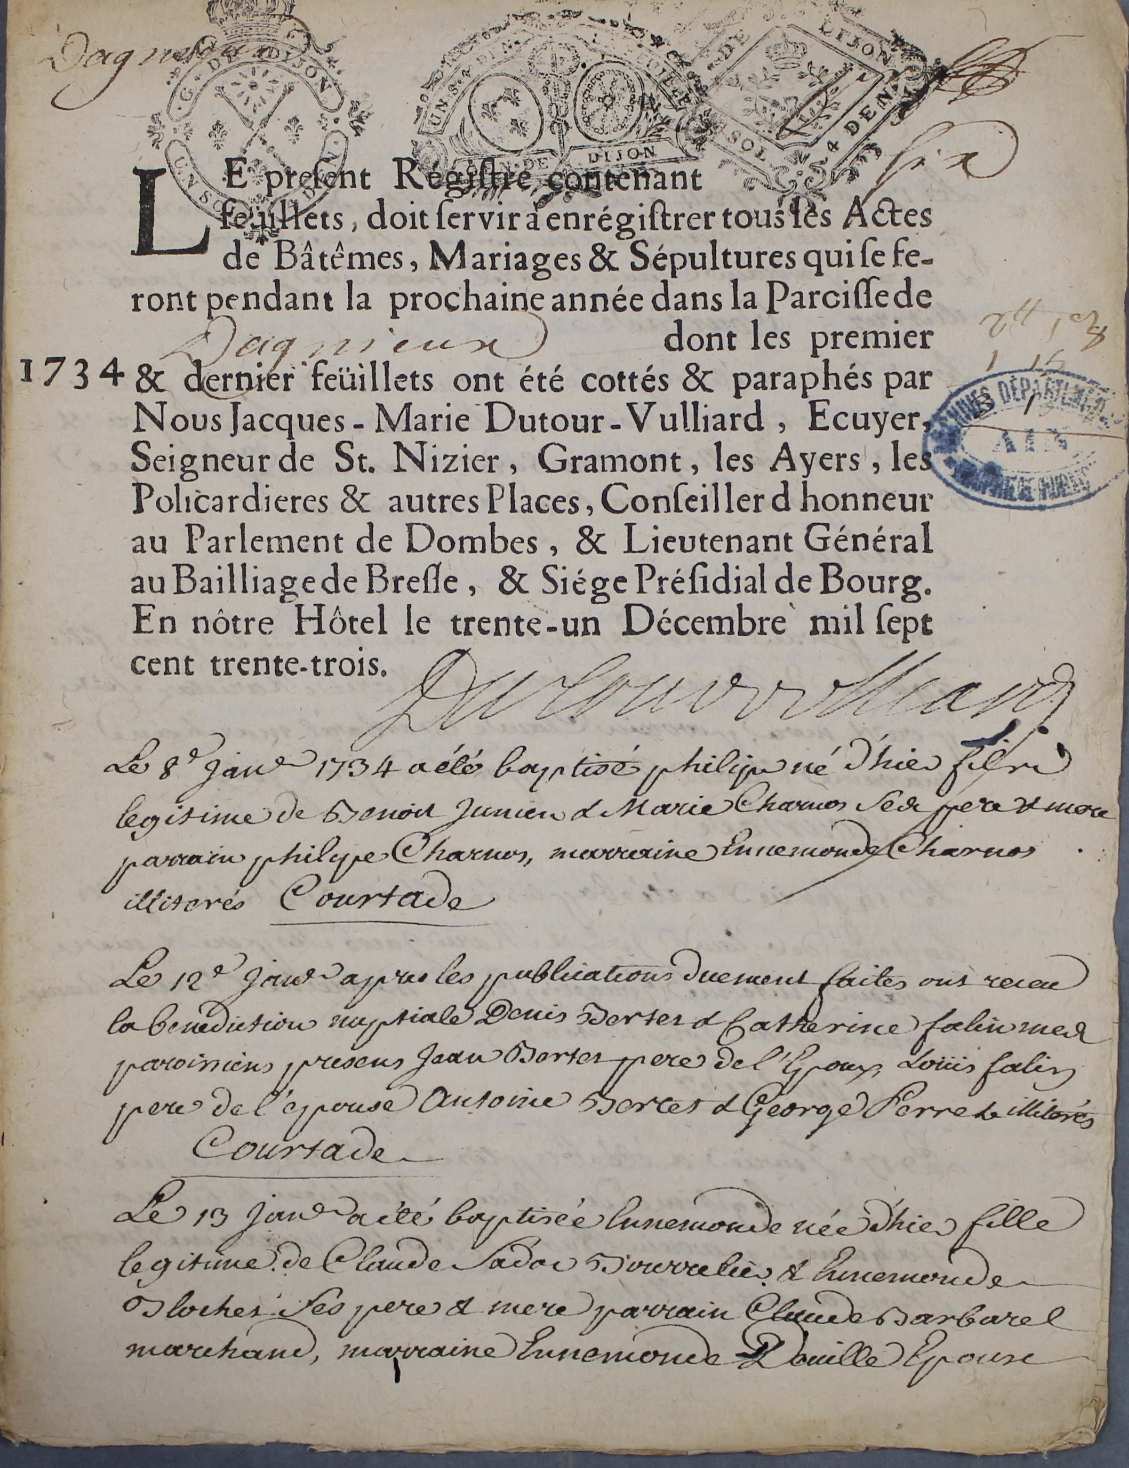 Dagnieux
G. DE DIJON
UN SOL
UN S. 4 DEN.
GEN. DE DIJON
DE DIJON
SOL 4 DEN
six
LE present Régistre, contenant
feüillets, doit servir à enrégistrer tous les Actes
de Bâtêmes, Mariages & Sépultures qui se fe-
ront pendant la prochaine année dans la Paroisse de
Dagnieux dont les premier
1734 & dernier feüillets ont été cottés & paraphés par
Nous Jacques-Marie Dutour-Vulliard, Ecuyer,
Seigneur de St. Nizier, Gramont, les Ayers, les
Policardieres & autres Places, Conseiller d honneur
au Parlement de Dombes, & Lieutenant Général
au Bailliage de Bresse, & Siége Présidial de Bourg.
En nôtre Hôtel le trente-un Décembre mil sept
cent trente-trois.
ARCHIVES DÉPARTEMENTALES
AIN
PROPRIÉTÉ PUBLIQUE
Dutour Vulliard
Le 8e janvr 1734 a été baptisé philipe né d'hier fils
legitime de Benoit Junien & Marie Charnos ses pere & mere
parrain philipe Charnos, marraine Ennemonde Charnos
illiterés Courtade
Le 12e janvr apres les publications duement faites ont receu
la benediction nuptiale Denis Berter & Catherine falin mes
paroissiens presens Jean Berter pere de l'Epoux, Loüis falin
pere de l'epouse Antoine Berter & George Perret illiterés
Courtade
Le 13 janvr a été baptisée Ennemonde née d'hier fille
legitime de Claude Bourrelier & Ennemonde
Blochet ses pere & mere parrain Claude Barbarel
marchand, marraine Ennemonde Douille Epouse